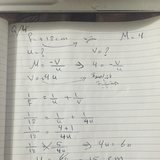 Q/4
f = +15cm M = 4
u = ? v = ?
M = -v/u ⇒ 4 = -v/u
v = -4u
1/f = 1/u + 1/v
1/15 = 1/u + 1/4u
1/15 = 4+1/4u
1/15 × 5/4u ⇒ 4u = 60